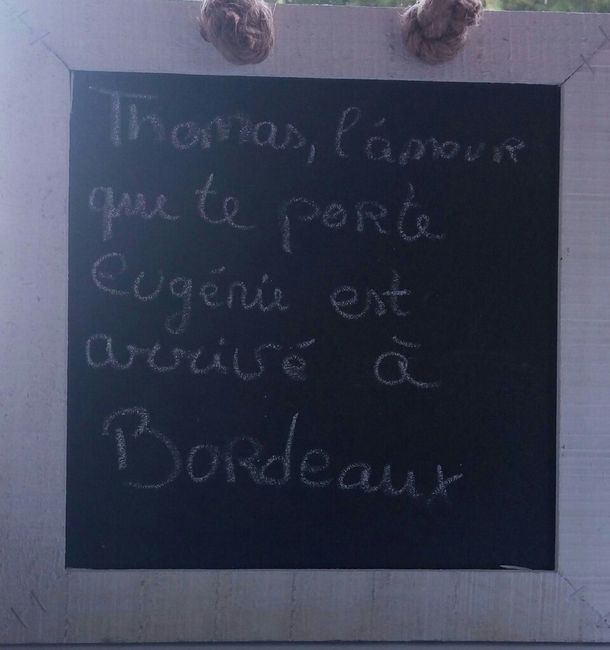 Thomas, l'amour
que te porte
Eugénie est
arrivé à
Bordeaux